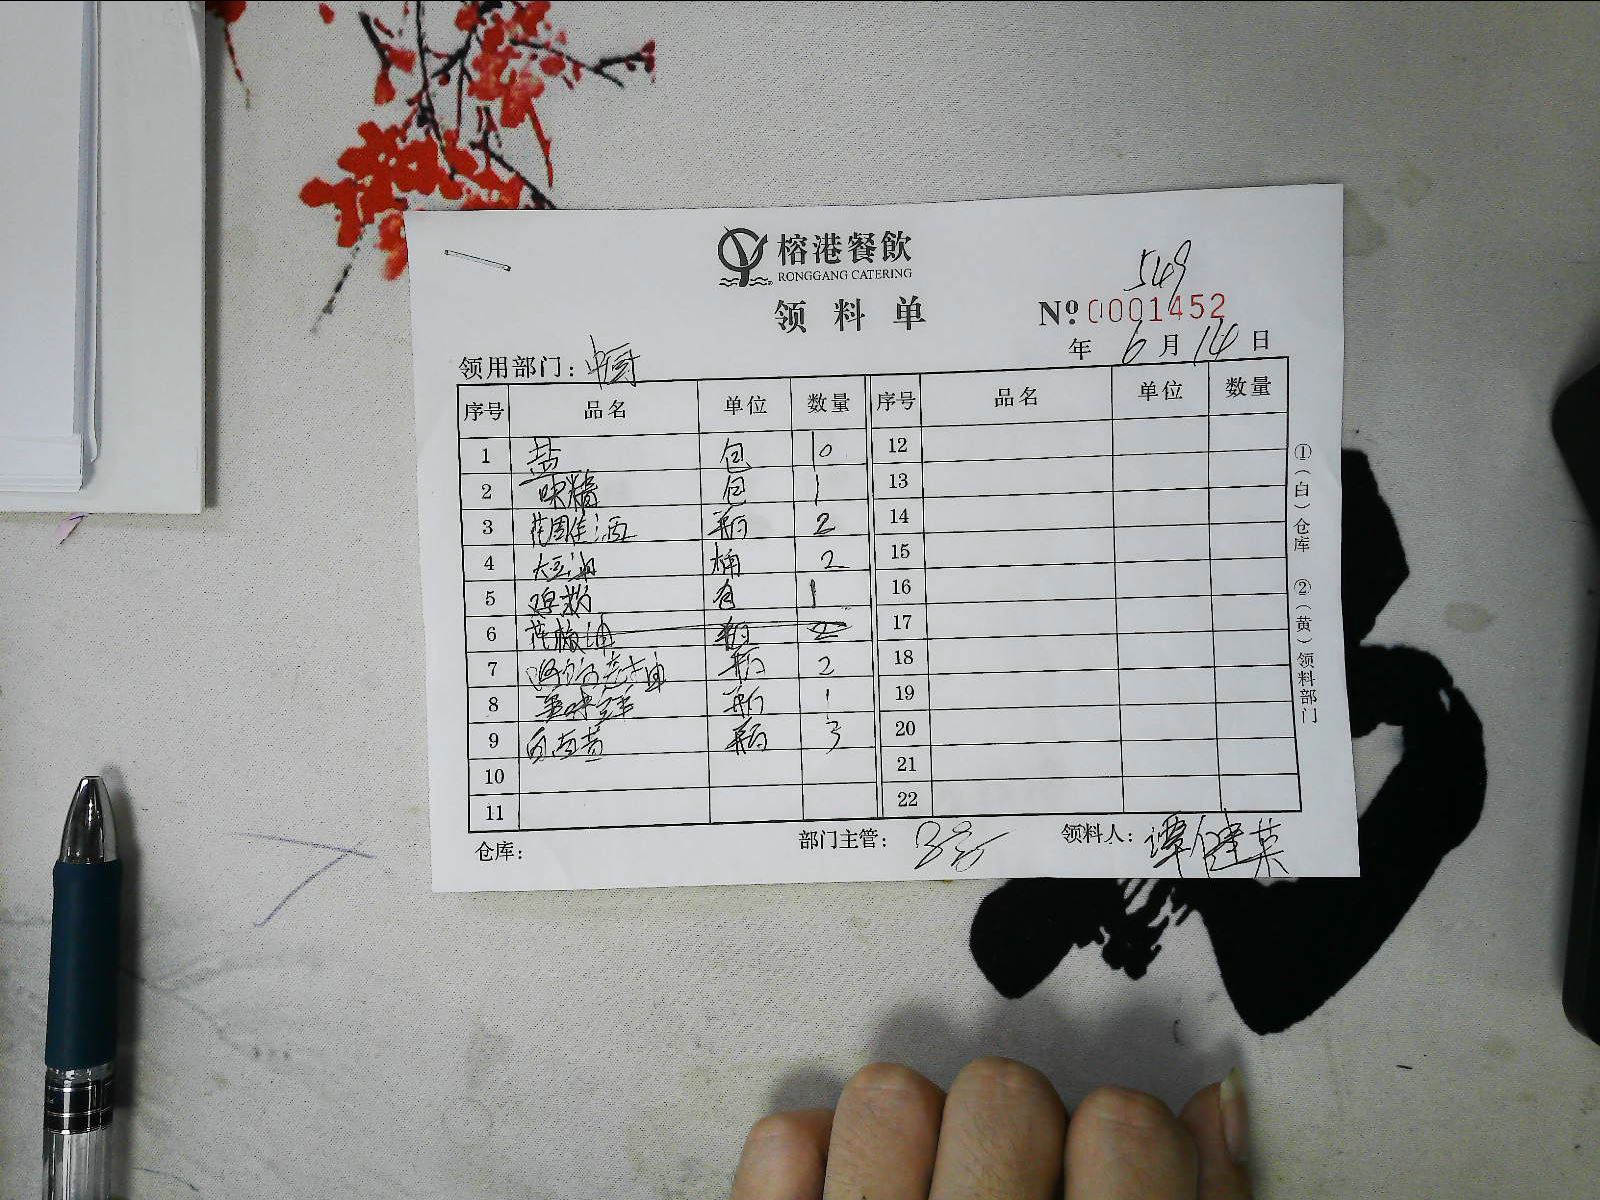 榕港餐飲
RONGGANG CATERING
549
领料单 Nº 0001452
年 6 月 14 日
领用部门: 中厨
序号 品名 单位 数量 序号 品名 单位 数量
1 盐 包 10 12
2 味精 包 1 13
3 花雕酒 瓶 2 14
4 大豆油 桶 2 15
5 鸡粉 1 16
6 花椒油 瓶 2 17
7 老抽 瓶 2 18
8 味 瓶 1 19
9 瓶 3 20
10 21
11 22
①(白)仓库 ②(黄)领料部门
仓库: 部门主管: 领料人: 谭健英